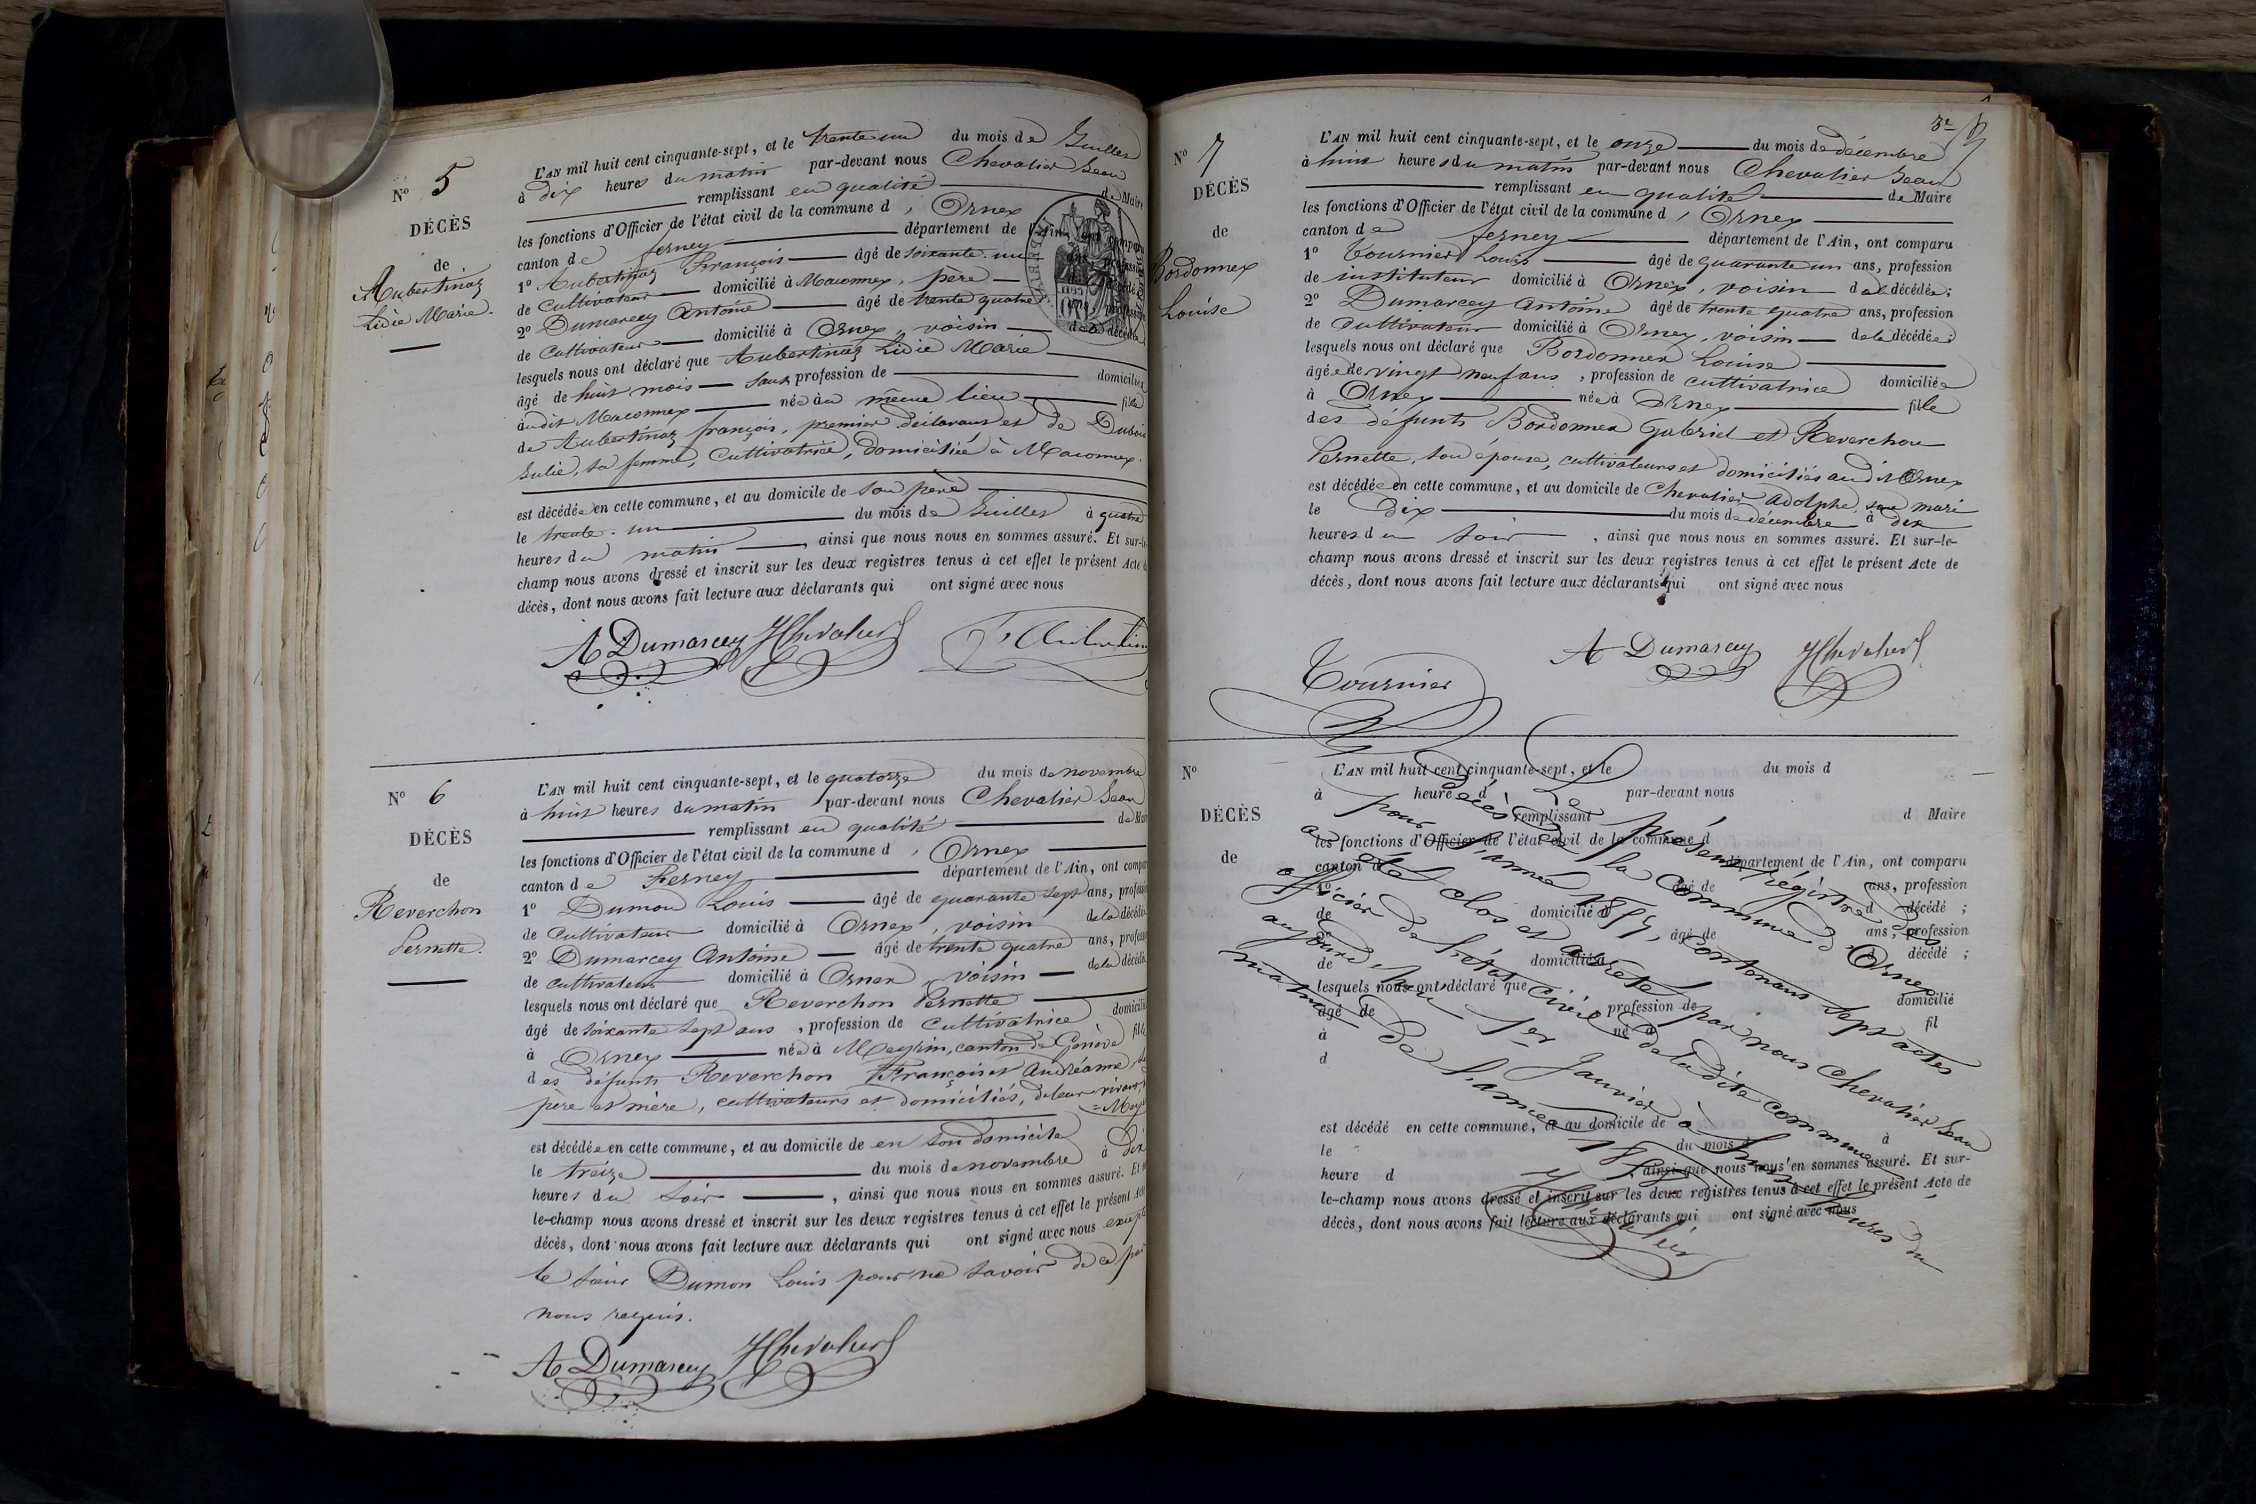 N° 5
DÉCÈS
de
Aubertinaz
Lidie Marie.
L'AN mil huit cent cinquante-sept, et le trente un du mois de Juillet
à dix heures du matin par-devant nous Chevalier Jean
remplissant en qualité de Maire
les fonctions d'Officier de l'état civil de la commune d' Ornex
canton de ferney département de l'Ain, ont comparu
1° Aubertinaz François âgé de soixante-un
de Cultivateur domicilié à Maconnex, père
2° Dumarcey Antoine âgé de trente quatre
de Cultivateur domicilié à Ornex, voisin de la décédée
lesquels nous ont déclaré que Aubertinaz Lidie Marie
âgé de huit mois sans profession de domiciliée
audit Maconnex née au même lieu fille
de Aubertinaz françois, premier déclarant et de Dubois
Julie, sa femme, Cultivatrice, domiciliée à Maconnex.
est décédée en cette commune, et au domicile de son père
le trente-un du mois de Juillet à quatre
heures du matin, ainsi que nous nous en sommes assuré. Et sur-le-
champ nous avons dressé et inscrit sur les deux registres tenus à cet effet le présent Acte de
décès, dont nous avons fait lecture aux déclarants qui ont signé avec nous
A Dumarcey JChevalier
N° 6
DÉCÈS
de
Reverchon
Pernette.
L'AN mil huit cent cinquante-sept, et le quatorze du mois de novembre
à huit heures du matin par-devant nous Chevalier Jean
remplissant en qualité de Mair
les fonctions d'Officier de l'état civil de la commune d' Ornex
canton de Ferney département de l'Ain, ont compar
1° Dumon Louis âgé de quarante sept ans, profession
de Cultivateur domicilié à Ornex, voisin de la décédée
2° Dumarcey Antoine âgé de trente quatre ans, profession
de cultivateur domicilié à Ornex, voisin de la décédée
lesquels nous ont déclaré que Reverchon Pernette
âgé de soixante sept ans, profession de cultivatrice domicilié
à Ornex née à Meyrin, canton de Genève fille
des défunts Reverchon François et Andréanne, ses
père et mère, cultivateurs et domiciliés, de leur vivant, à
=Mey
est décédée en cette commune, et au domicile de en son domicile
le treize du mois de novembre à dix
heures du soir, ainsi que nous nous en sommes assuré. Et sur-
le-champ nous avons dressé et inscrit sur les deux registres tenus à cet effet le présent Acte
décès, dont nous avons fait lecture aux déclarants qui ont signé avec nous excepté
le sieur Dumon Louis pour ne savoir de ce par
nous requis.
A Dumarcey JChevalier
3e
N° 7
DÉCÈS
de
Bordonnex
Louise
L'AN mil huit cent cinquante-sept, et le onze du mois de décembre
à huit heures du matin par-devant nous Chevalier Jean
remplissant en qualité de Maire
les fonctions d'Officier de l'état civil de la commune d' Ornex
canton de ferney département de l'Ain, ont comparu
1° Tournier Louis âgé de quarante un ans, profession
de instituteur domicilié à Ornex, voisin de la décédée;
2° Dumarcey Antoine âgé de trente quatre ans, profession
de cultivateur domicilié à Ornex, voisin de la décédée;
lesquels nous ont déclaré que Bordonnex Louise
âgée de vingt neuf ans, profession de cultivatrice domiciliée
à Ornex née à Ornex fille
des défunts Bordonnex Gabriel et Reverchon
Pernette, son épouse, cultivateurs et domiciliés audit Ornex
est décédée en cette commune, et au domicile de Chevalier Adolphe, son mari
le dix du mois de décembre à dix
heures du soir, ainsi que nous nous en sommes assuré. Et sur-le-
champ nous avons dressé et inscrit sur les deux registres tenus à cet effet le présent Acte de
décès, dont nous avons fait lecture aux déclarants qui ont signé avec nous
A Dumarcey JChevalier
Tournier
N°
DÉCÈS
de
L'AN mil huit cent cinquante-sept, et le du mois d
à heure d par-devant nous
remplissant d Maire
les fonctions d'Officier de l'état civil de la commune d
canton d département de l'Ain, ont comparu
1° âgé de ans, profession
de domicilié à d décédé;
2° âgé de ans, profession
de domicilié à décédé;
lesquels nous ont déclaré que
âgé de profession de domicilié
à né à fil
d
est décédé en cette commune, et au domicile de
le du mois d à
heure d ainsi que nous nous en sommes assuré. Et sur-
le-champ nous avons dressé et inscrit sur les deux registres tenus à cet effet le présent Acte de
décès, dont nous avons fait lecture aux déclarants qui ont signé avec nous
Le présent régistre des
décès de la commune d'Ornex
pour l'année 1857, contenant sept actes
a été clos et arrêté par nous Chevalier Jean
officier de l'état civil de la dite commune
aujourd'hui 1er Janvier à huit heures du
matin de l'année 1858.
JChevalier